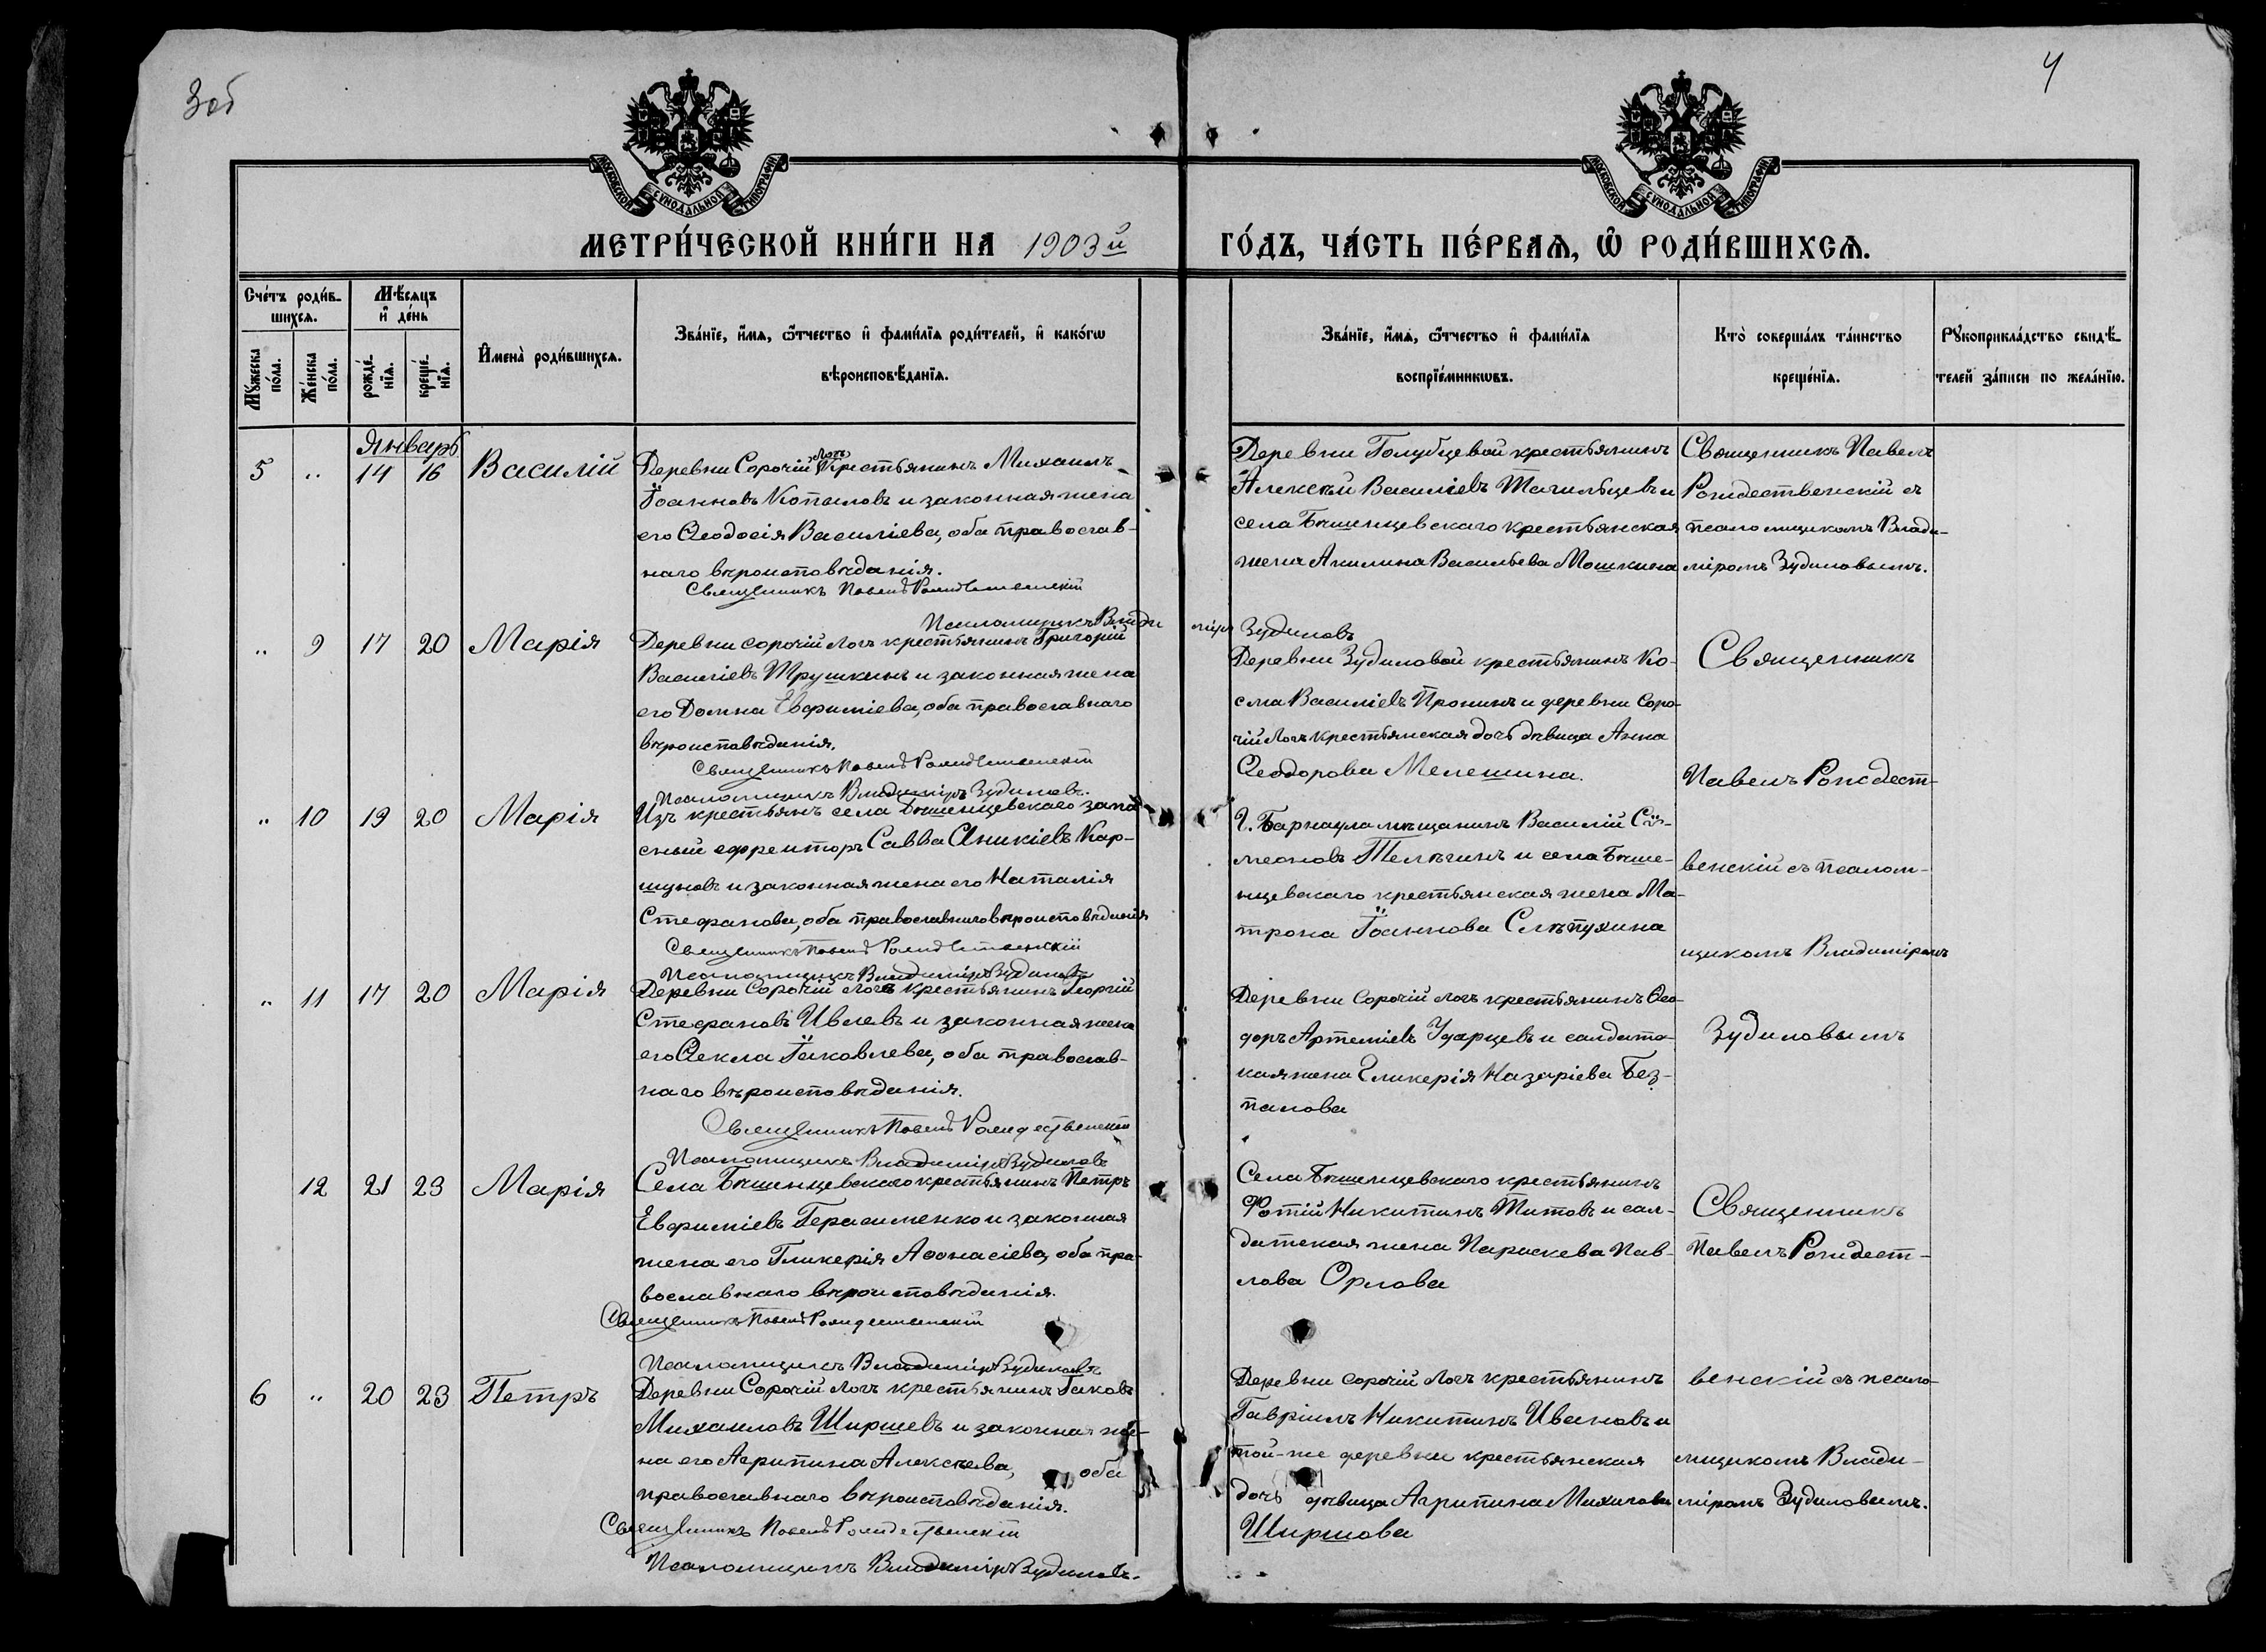 3об
4
МОСКОВСКОЙ СѴНОДАЛЬНОЙ ТИПОГРАФІИ
МОСКОВСКОЙ СѴНОДАЛЬНОЙ ТИПОГРАФІИ
МЕТРИ́ЧЕСКОЙ КНИ́ГИ НА 1903й
ГО́ДЪ, ЧА́СТЬ ПЕ́РВАѦ, Ѿ РОДИ́ВШИХСѦ.
Сче́тъ роди́в-
шихсѧ.
Мꙋжеска
по́ла.
Же́нска
по́ла.
Мѣ́сѧцъ
и҆ де́нь
рожде́-
нїѧ.
креще́-
нїѧ.
И҆мена̀ роди́вшихсѧ.
Зва́нїе, и҆́мѧ, ѻ҆́тчество и҆ фами́лїѧ роди́телей, и҆ како́гѡ
вѣроисповѣ́данїѧ.
Зва́нїе, и҆́мѧ, ѻ҆́тчество и҆ фами́лїѧ
воспрїе́мникѡвъ.
Кто̀ соверша́лъ та́инство
креще́нїѧ.
Рꙋкоприкла́дство свидѣ́-
телей за́писи по жела́нїю.
Январь
5 „ 14 16 Василій
Деревни Сорочій Логъ Крестьянинъ Михаилъ
Іоанновъ Копыловъ и законная жена
его Ѳеодосія Василіева, оба православ-
наго вѣроисповѣданія.
Священникъ Павелъ Рождественскій
Псаломщикъ Владиміръ Зудиловъ
Деревни Голубцевой крестьянинъ
Алексѣй Василіевъ Тагильцевъ и
села Бѣшенцевскаго крестьянская
жена Акилина Васильева Мошкина
Священникъ Павелъ
Рождественскій съ
псаломщикомъ Влади-
міромъ Зудиловымъ.
„ 9 17 20 Марія
Деревни Сорочій Логъ крестьянинъ Григорій
Василіевъ Трушкинъ и законная жена
его Домна Евфиміева, оба православнаго
вѣроисповѣданія.
Священникъ Павелъ Рождественскій
Псаломщикъ Владиміръ Зудиловъ.
Деревни Зудиловой крестьянинъ Ко-
сма Василіевъ Пронинъ и деревни Соро-
чій Логъ крестьянская дочь дѣвица Анна
Ѳеодорова Мелешина.
Священникъ
Павелъ Рождест-
„ 10 19 20 Марія
Изъ крестьянъ села Бѣшенцевскаго запа-
сный ефрейторъ Савва Аникіевъ Кар-
шуновъ и законная жена его Наталія
Стефанова, оба православнаго вѣроисповѣданія
Священникъ Павелъ Рождественскій
Псаломщикъ Владиміръ Зудиловъ
Г. Барнаула мѣщанинъ Василій Сѵ-
меоновъ Телѣгинъ и села Бѣше-
нцевскаго крестьянская жена Ма-
трона Іоаннова Слѣпухина
венскій съ псалом-
щикомъ Владиміромъ
„ 11 17 20 Марія
Деревни Сорочій Логъ крестьянинъ Георгій
Стефановъ Ивлевъ и законная жена
его Ѳекла Іаковлева, оба православ-
наго вѣроисповѣданія.
Священникъ Павелъ Рождественскій
Псаломщикъ Владиміръ Зудиловъ
Деревни Сорочій Логъ крестьянинъ Ѳео-
доръ Артеміевъ Ударцевъ и салдатс-
кая жена Гликерія Назаріева Без-
палова
Зудиловымъ
12 21 23 Марія
Села Бѣшенцевскаго крестьянинъ Петръ
Евфиміевъ Герасименко и законная
жена его Гликерія Аѳонасіева, оба пра-
вославнаго вѣроисповѣданія.
Священникъ Павелъ Рождественскій
Псаломщикъ Владиміръ Зудиловъ
Села Бѣшенцевскаго крестьянинъ
Фотій Никитинъ Титовъ и сал-
датская жена Параскева Пав-
лова Орлова
Священникъ
Павелъ Рождест-
6 „ 20 23 Петръ
Деревни Сорочій Логъ крестьянинъ Іаковъ
Михаиловъ Ширшевъ и законная же-
на его Агрипина Алексѣева, оба
православнаго вѣроисповѣданія.
Священникъ Павелъ Рождественскій
Псаломщикъ Владиміръ Зудиловъ.
Деревни Сорочій Логъ крестьянинъ
Гавріилъ Никитинъ Ивановъ и
той-же деревни крестьянская
дочь дѣвица Агрипина Михаилова
Ширшова
венскій съ псало-
мщикомъ Влади-
міромъ Зудиловымъ.